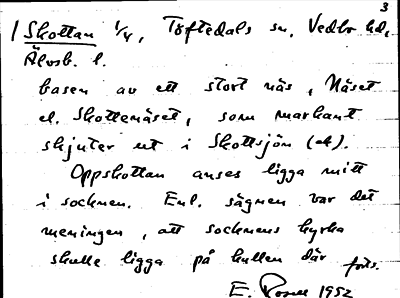 3
/ Skottan 1/4, Töftedals sn, Vedbo hd,
Älvsb. l.
basen av ett stort näs, Näset
el. Skottenäset, som markant
skjuter ut i Skottsjön (A).
Oppskottan anses ligga mitt
i socknen. Enl. sägnen var det
meningen, att socknens kyrka
skulle ligga på kullen där
forts.
E. 1952